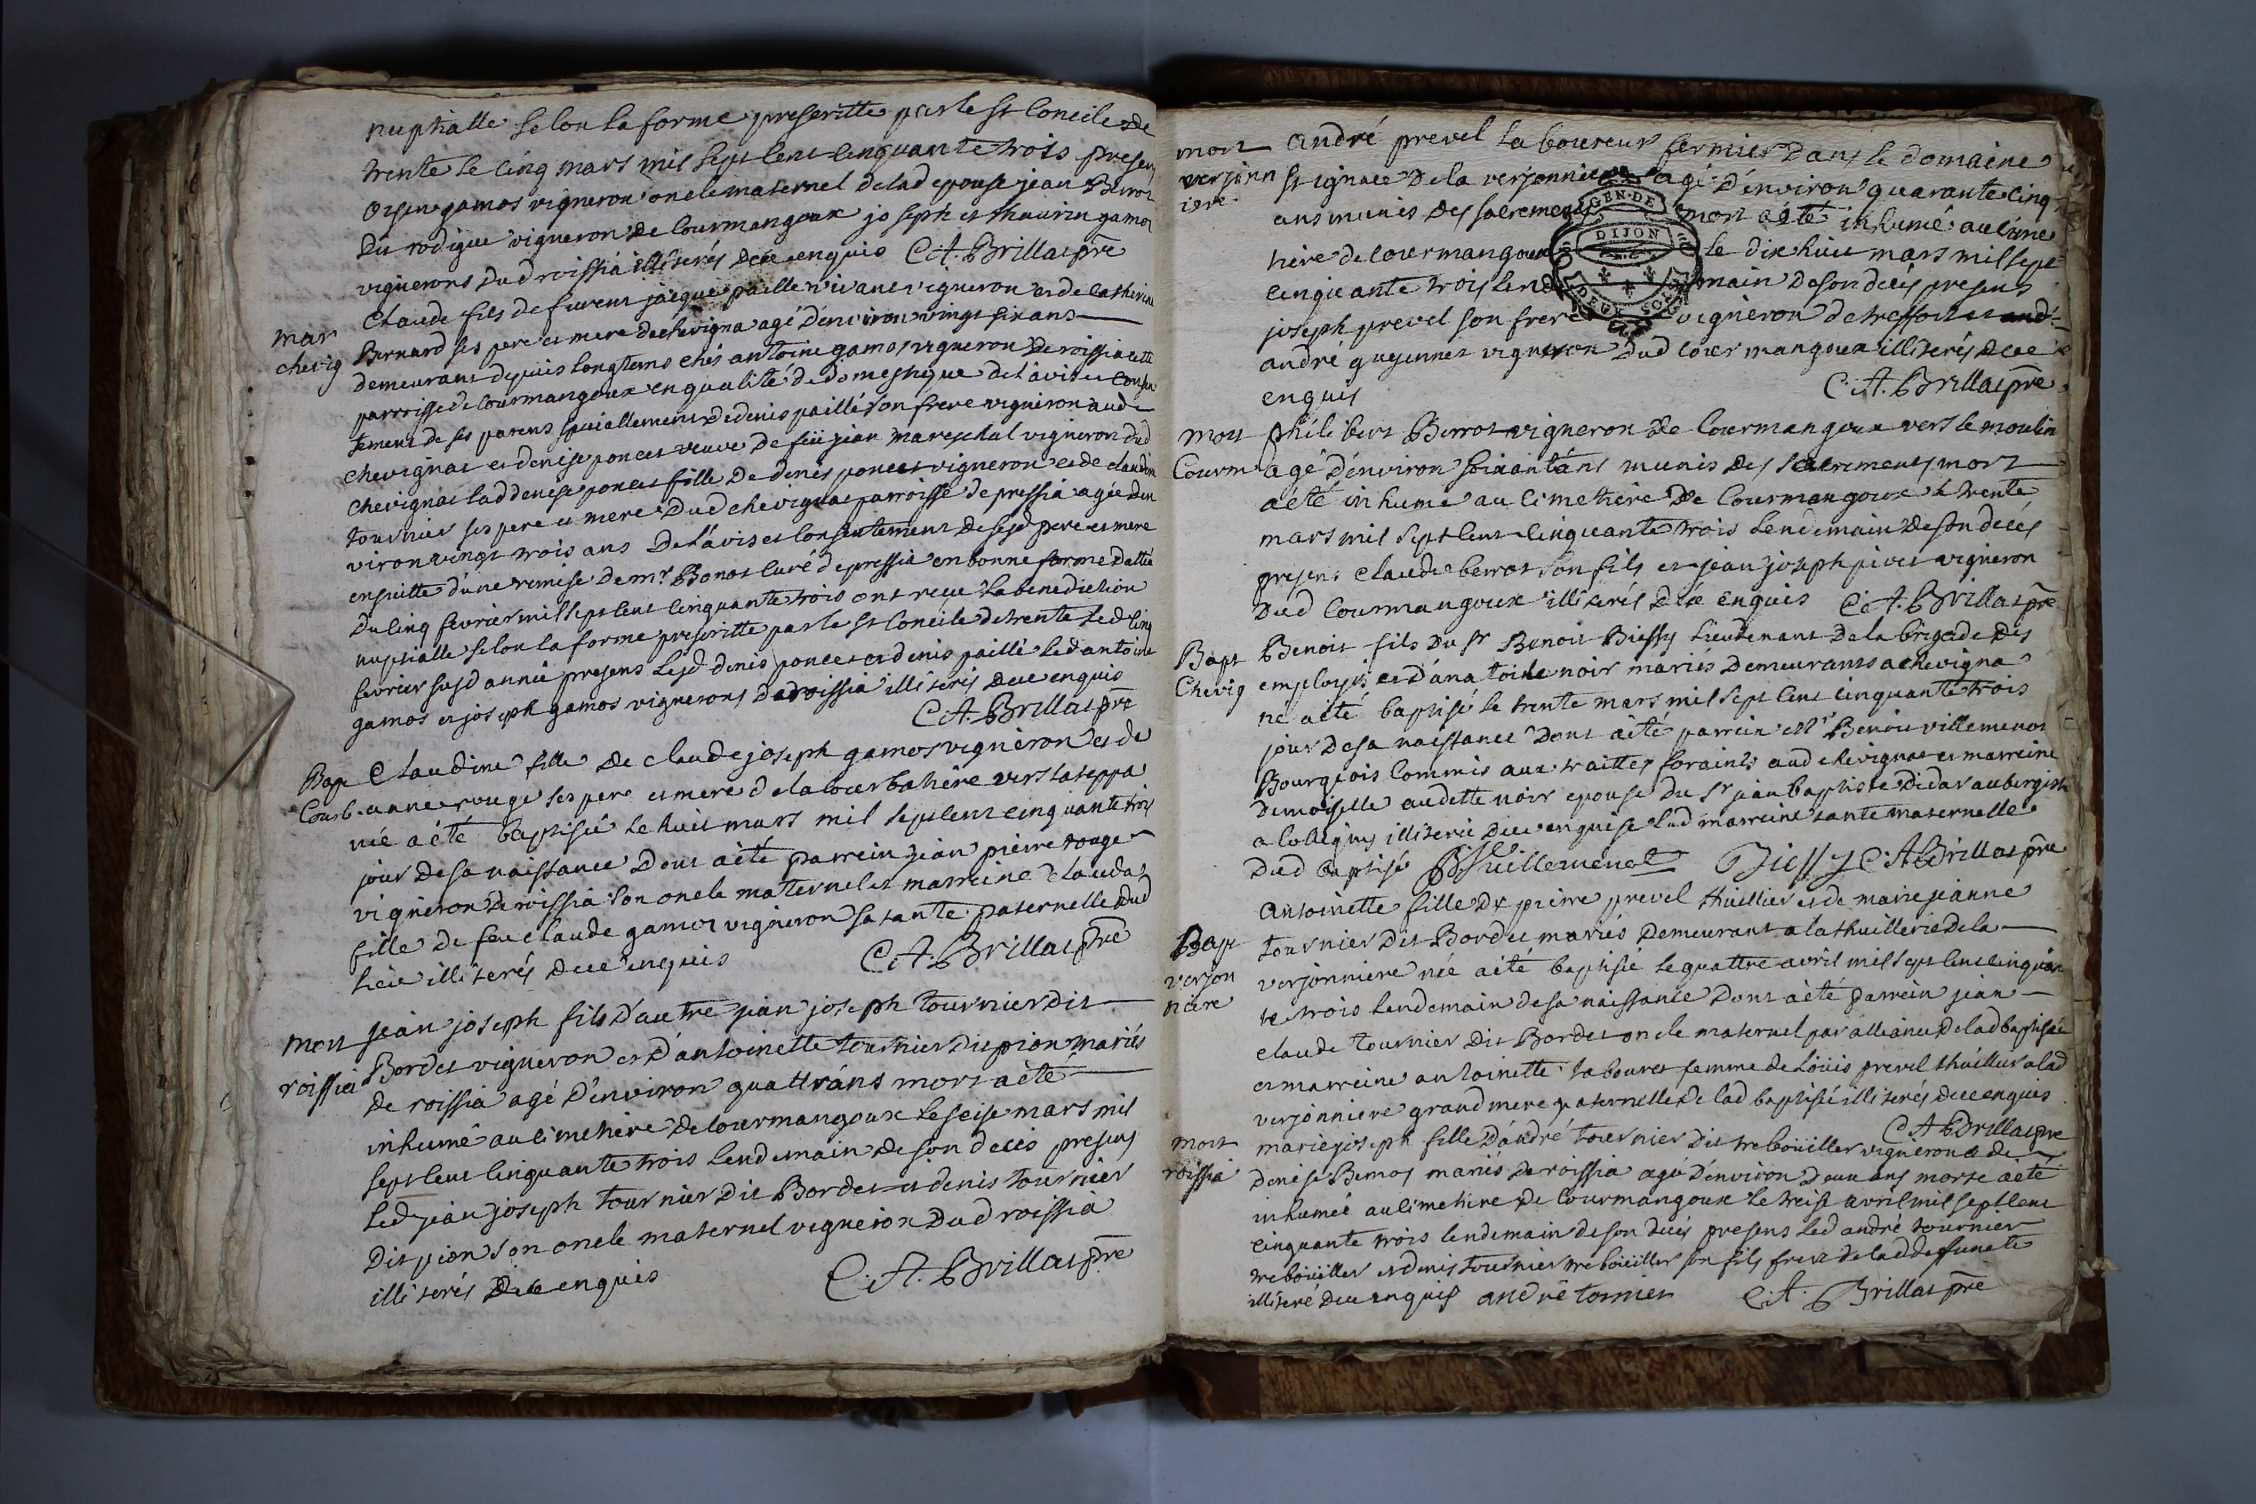 nuptialle selon la forme prescritte par le st Concile de
trente le cinq mars mil sept cent cinquante trois presens
oisen gamos vigneron oncle maternel de lad epouse jean
du rodigue vigneron de Courmangoux joseph et thaurin gamos
vignerons dud roissia illiterés de ce enquis C. A. Brillat ptre
mar
chevig
Claude fils de fu vent jacque paille vivant vigneron et de Catherine
Bernard ses pere et mere de chevigna agé d'environ vingt six ans
demeurant depuis longtems chés antoine gamos vigneron de roissia cette
parroisse de Courmangoux en qualité de domestique de l'avis et consen
tement de ses parens specialement de denis paillé son frere vigneron aud
chevignat et denise poncet veuve de feu jean mareschal vigneron dud
chevignat lad denise poncet fille de denis poncet vigneron et de claudine
tournier ses pere et mere dud chevignat parroisse de pressia agée d'en
viron vingt trois ans de l'avis et consentement de sesd pere et mere
ensuitte d'une remise de mr Bonot curé de pressia en bonne forme dattée
du cinq fevrier mil sept cent cinquante trois ont receu la benediction
nuptialle selon la forme prescritte par le st Concile de trente led cinq
fevrier susd année presens lesd denis poncet et denis paillé led antoine
gamos et joseph gamos vignerons dud roissia illiterés de ce enquis
C. A. Brillat ptre
Bap
Courb.
Claudine fille de claude joseph gamos vigneron et de
anne rouge ses pere et mere de la courbatiere vers la seppa
née a été baptisée le huit mars mil sept cent cinquante trois
jour de sa naissance dont a été parrein jean pierre rouge
vigneron de roissia son oncle maternel et marreine claudat
fille de feu claude gamos vigneron sa tante paternelle dud
lieu illiterés de ce enquis C. A. Brillat ptre
mort
roissia
jean joseph fils d'autre jean joseph tournier dit
Bordet vigneron et d'antoinette tournier dit pion mariés
de roissia agé d'environ quattr'ans mort a été
inhumé au cimetiere de Courmangoux le seise mars mil
sept cent cinquante trois lendemain de son decés presens
led jean joseph tournier dit Bordet et denis tournier
dit pion son oncle maternel vigneron dud roissia
illiterés de ce enquis C. A. Brillat ptre
mort
verjonn
iere
André prevel laboureur fermier dans le domaine
st ignace de la verjonniere agé d'environ quarante cinq
ans munis des sacremens mort a été inhumé au cime
tiere de Courmangoux le dix huit mars mil sept
cinquante trois lendemain de son decés presens
joseph prevel son frere vigneron de treffort et
andré guyennet vigneron dud Courmangoux illiterés de ce
enquis C. A. Brillat ptre
GEN. DE
DIJON
DEUX SOLS
mort
Courm
philibert Berrot vigneron de Courmangoux vers le moulin
agé d'environ soixant'ans munis des sacremens mort
a été inhumé au cimetiere de Courmangoux le trente
mars mil sept cent cinquante trois lendemain de son decés
presens claude berrot son fils et jean joseph pivet vigneron
dud Courmangoux illiterés de ce enquis C. A. Brillat ptre
Bapt
Chevig
Benoit fils du sr Benoit Biessy lieutenant de la brigade des
employés et d'anatoile noir mariés demeurants a chevigna
né a été baptisé le trente mars mil sept cent cinquante trois
jour de sa naissance dont a été parrein mr Benoit villemenot
Bourgeois Commis aux traittes foraines aud chevignat et marreine
demoiselle audette noir epouse du sr jean baptiste didat aubergiste
a illiterée de ce enquise lad marreine tante maternelle
dud baptisé B Vuillemenot Biessy C. A. Brillat ptre
Bap
verjon
niere
Antoinette fille de pierre prevel thuillier et de marie jeanne
tournier dit Bordet mariés demeurant a la thuillerie de la
verjonniere née a été baptisée le quattre avril mil sept cent cinquan
te trois lendemain de sa naissance dont a été parrein jean
claude tournier dit Bordet oncle maternel par alliance de lad baptisée
et marreine antoinette tabouret femme de Löuis prevel thuillier a lad
verjonniere grand mere paternelle de lad baptisée illiterés de ce enquis
C. A. Brillat ptre
mort
roissia
marie joseph fille d'andré tournier dit trebouiller vigneron et de
denise Bemos mariés de roissia agée d'environ deux ans morte a été
inhumée au cimetiere de Courmangoux le treise avril mil sept cent
cinquante trois lendemain de son decés presens led andré tournier
trebouiller et denis tournier trebouiller son fils frere de lad deffuncte
illiteré de ce enquis andré tornier C. A. Brillat ptre